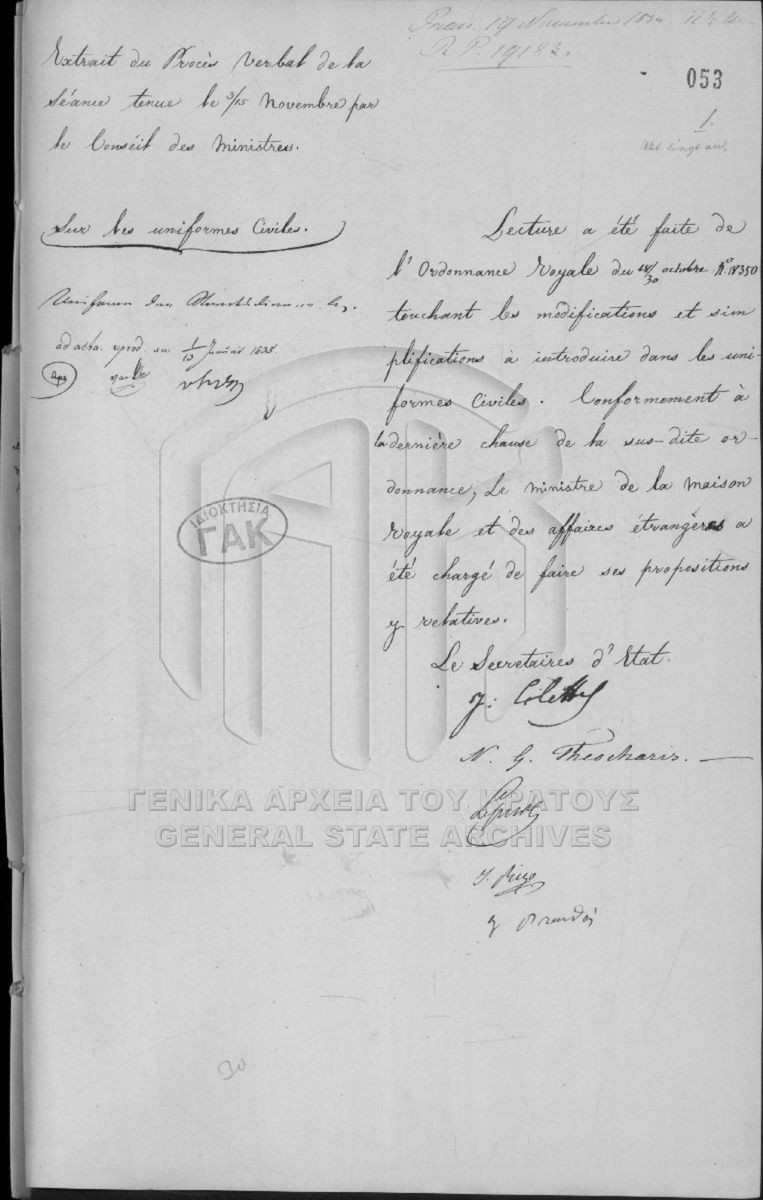 19 November 1834
R. P. 19183.
053
1.
Extrait du Procès verbal de la
Séance tenue le 3/15 Novembre par
le Conséil des Ministres.
Sur les uniformes Civiles.
ad acta.
1/13 1835.
Lecture a été faite de
l'Ordonnance Royale du 18/30 octobre No 18350
touchant les modifications et sim
plifications à introduire dans les uni-
formes Civiles. Conformement à
la dernière chause de la sus-dite or-
donnance, Le Ministre de la Maison
Royale et des affaires étrangères a
été chargé de faire ses propositions
y relatives.
Le Secretaires d'Etat.
J. Coletti
N. G. Theocharis.
Lesuire
J. Rizo
ΙΔΙΟΚΤΗΣΙΑ
ΓΑΚ
ΓΕΝΙΚΑ ΑΡΧΕΙΑ ΤΟΥ ΚΡΑΤΟΥΣ
GENERAL STATE ARCHIVES
30